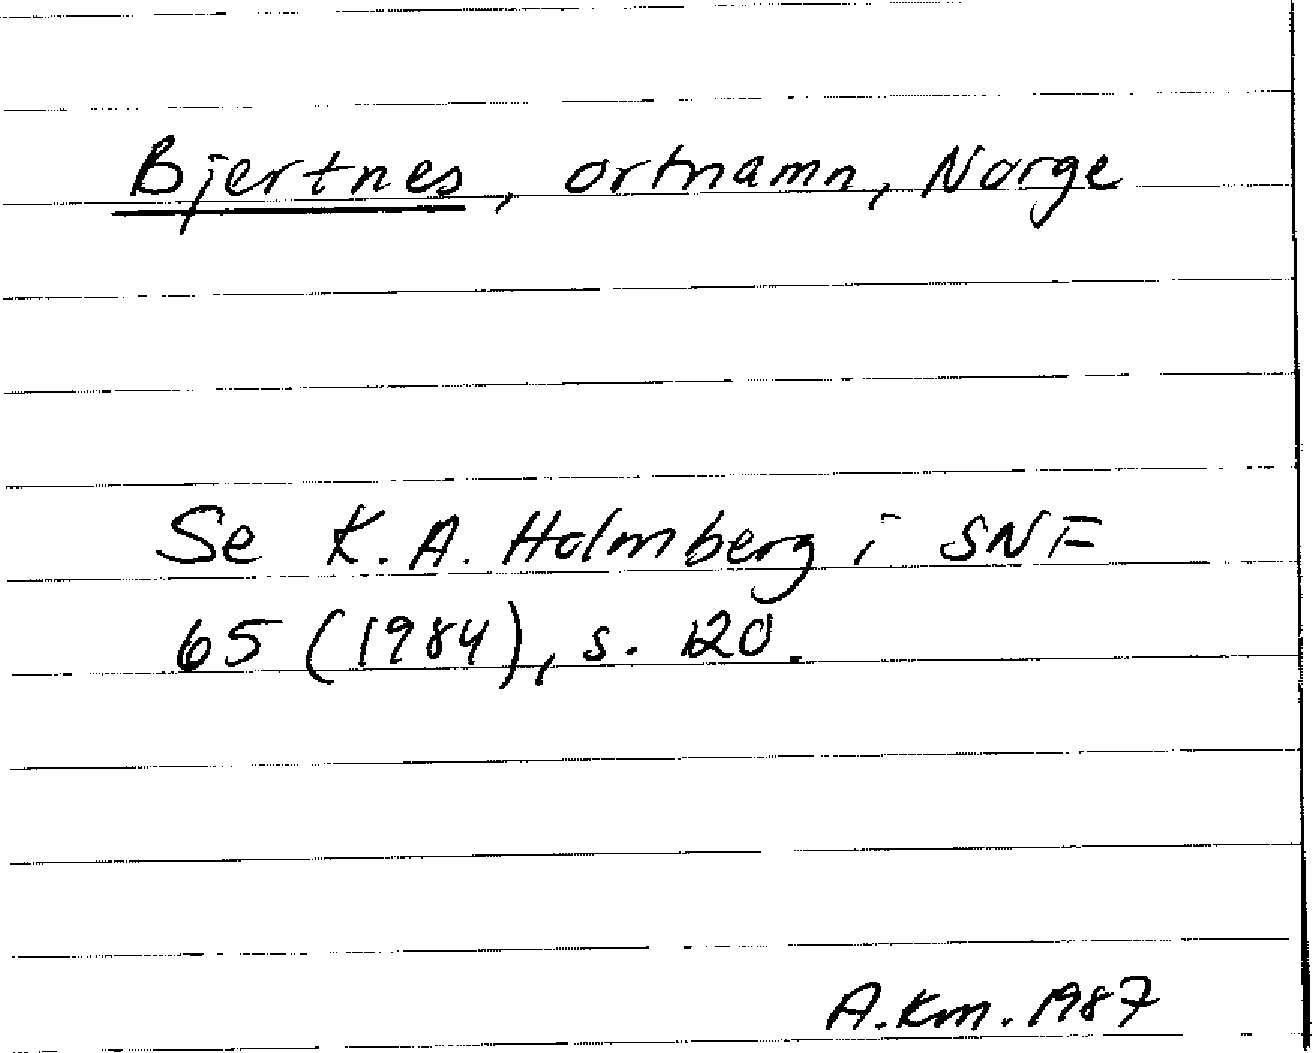 Bjertnes, ortnamn, Norge
Se K. A. Holmberg i SNF
65 (1984), s. 120.
A. Km. 1987